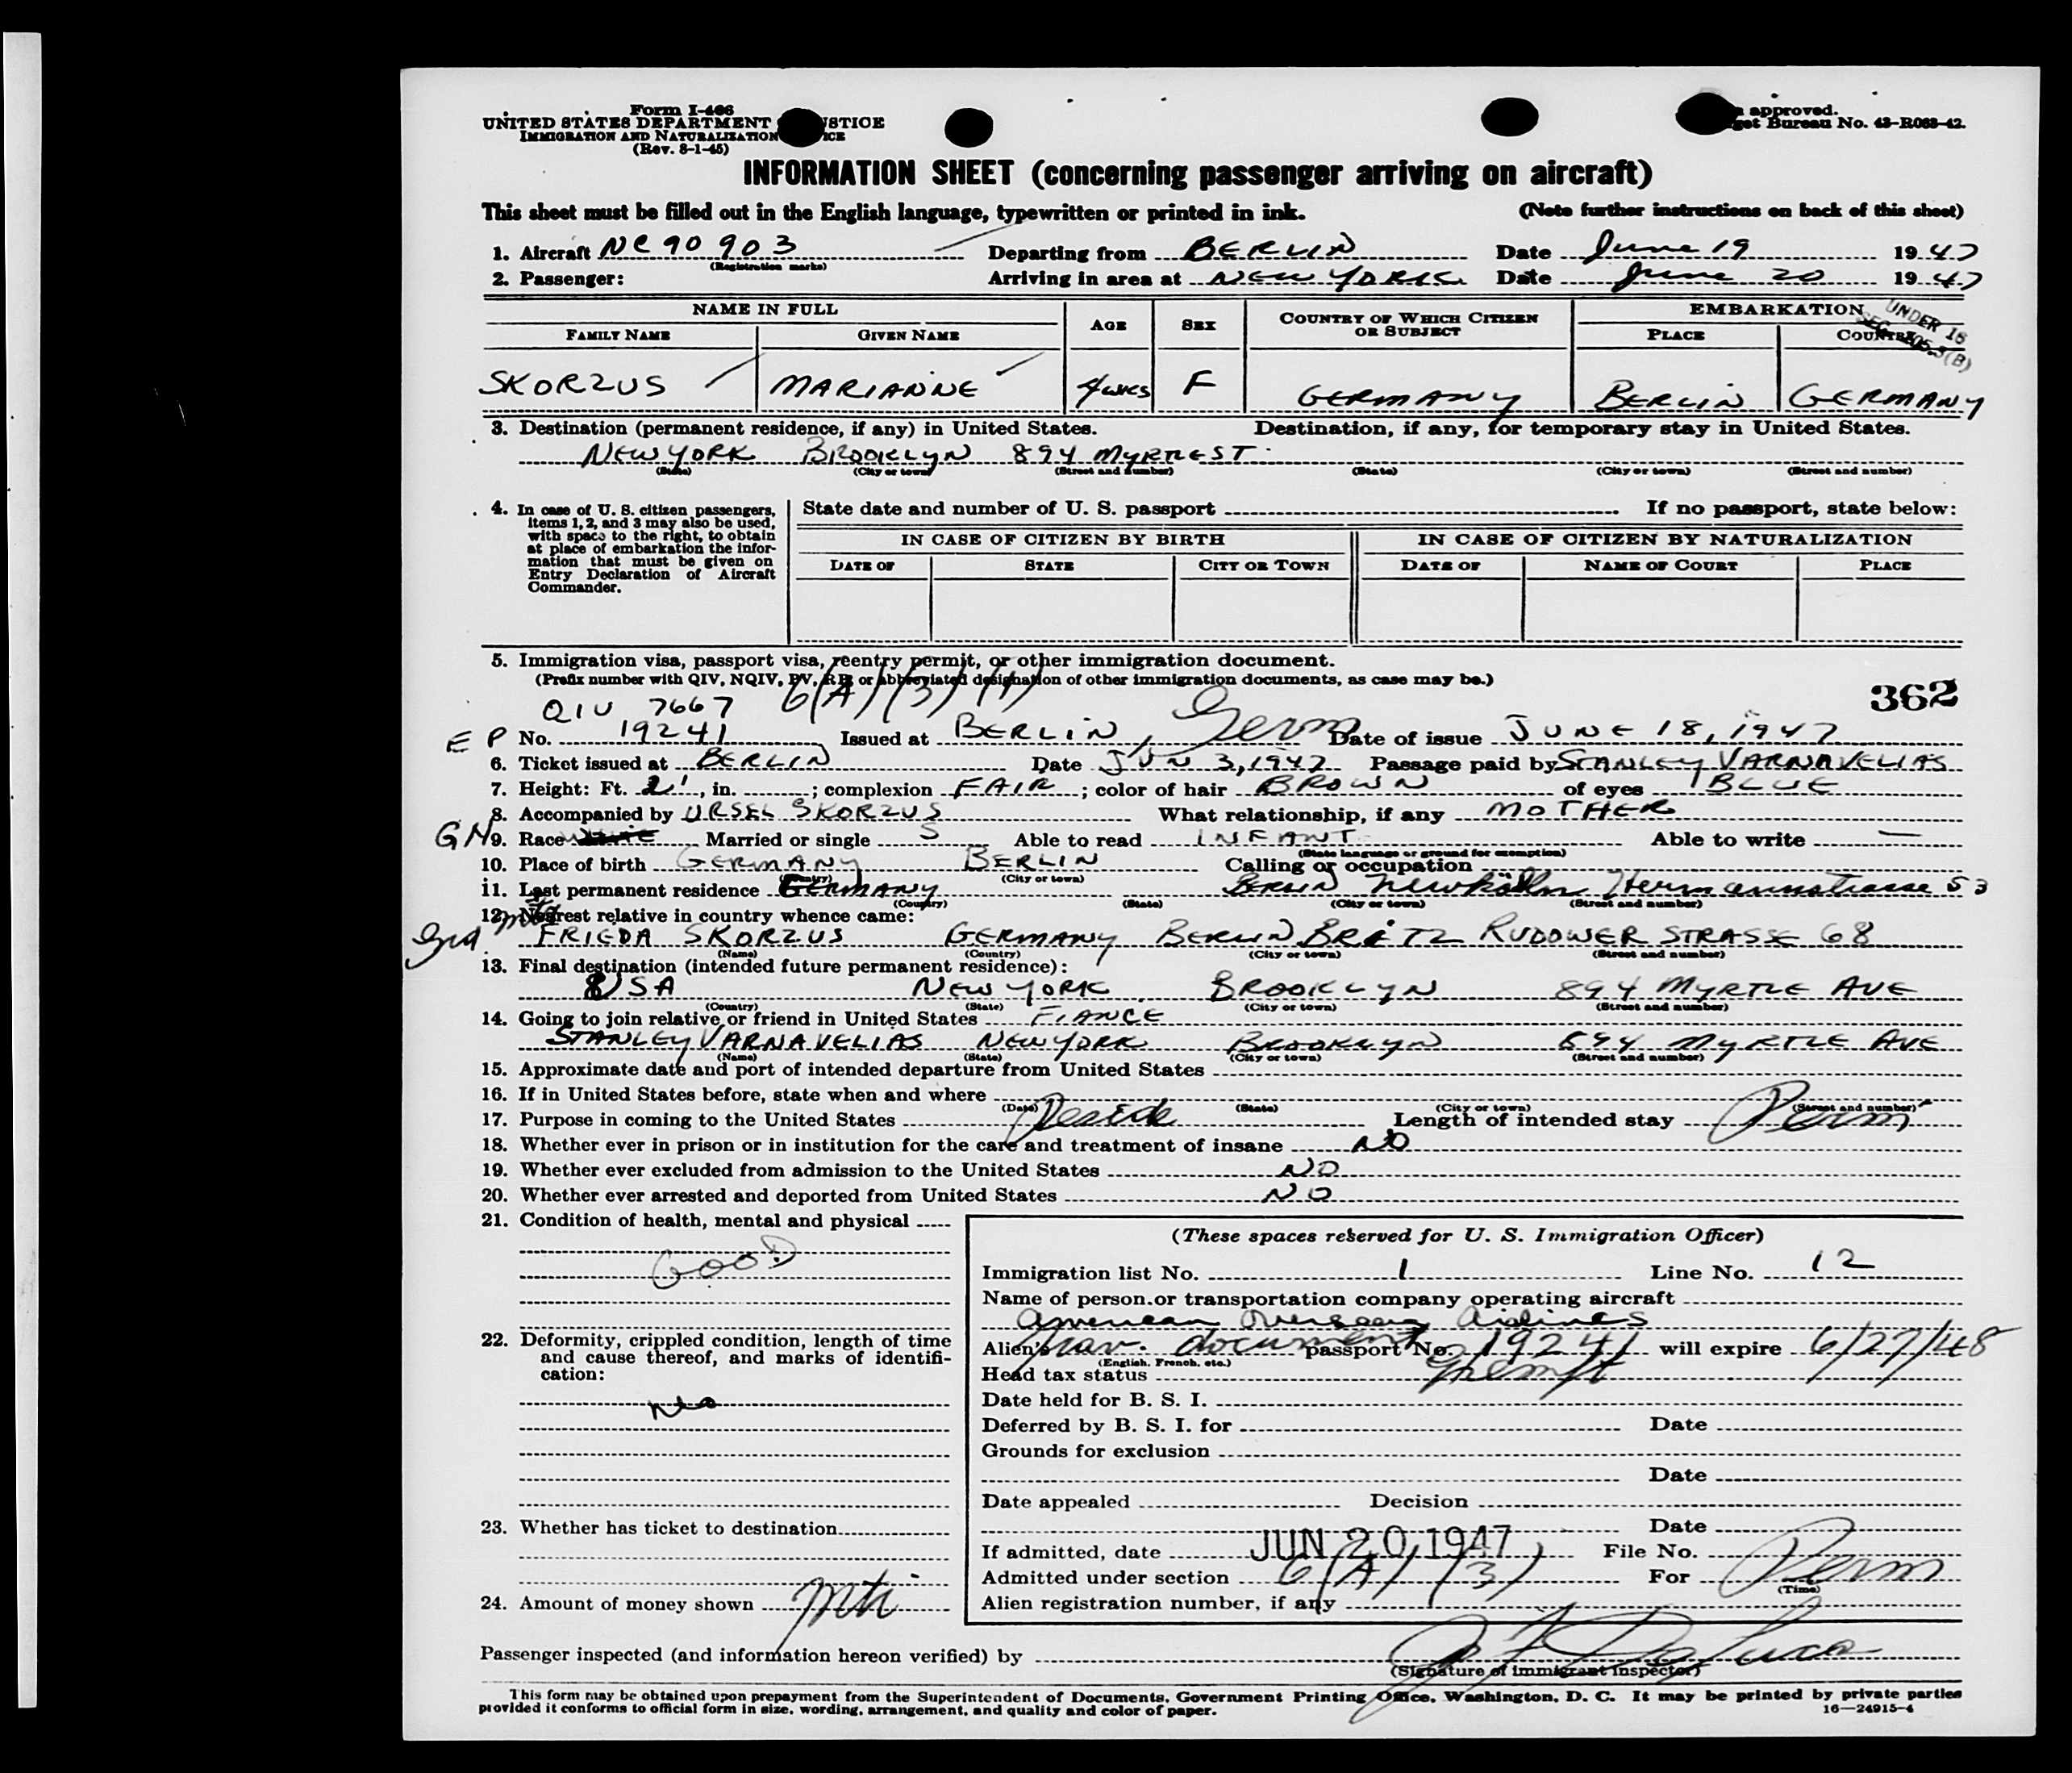 Form I-466
UNITED STATES DEPARTMENT JUSTICE
IMMIGRATION AND NATURALIZATION
(Rev. 8-1-45)
approved.
Budget Bureau No. 43-R063-42.
INFORMATION SHEET (concerning passenger arriving on aircraft)
This sheet must be filled out in the English language, typewritten or printed in ink. (Note further instructions on back of this sheet)
1. Aircraft NC 90 903 Departing from BERLIN Date June 19 1947
(Registration marks)
2. Passenger: Arriving in area at NEW YORK Date June 20 1947
NAME IN FULL AGE SEX COUNTRY OF WHICH CITIZEN OR SUBJECT EMBARKATION UNDER 16
FAMILY NAME GIVEN NAME PLACE COUNTRY
SKORZUS MARIANNE 4 wks F GERMANY BERLIN GERMANY
3. Destination (permanent residence, if any) in United States. Destination, if any, for temporary stay in United States.
NEW YORK BROOKLYN 894 MYRTLE ST.
(State) (City or town) (Street and number) (State) (City or town) (Street and number)
4. In case of U. S. citizen passengers, items 1, 2, and 3 may also be used, with space to the right, to obtain at place of embarkation the information that must be given on Entry Declaration of Aircraft Commander.
State date and number of U. S. passport If no passport, state below:
IN CASE OF CITIZEN BY BIRTH IN CASE OF CITIZEN BY NATURALIZATION
DATE OF STATE CITY OR TOWN DATE OF NAME OF COURT PLACE
5. Immigration visa, passport visa, reentry permit, or other immigration document.
(Prefix number with QIV, NQIV, PV, RP, or abbreviated designation of other immigration documents, as case may be.)
362
QIV 7667 6(A)(3)(1)
E P No. 19241 Issued at BERLIN, Germ Date of issue JUNE 18, 1947
6. Ticket issued at BERLIN Date JUN 3, 1947 Passage paid by STANLEY VARNAVELIAS
7. Height: Ft. 2', in. ; complexion FAIR ; color of hair BROWN of eyes BLUE
8. Accompanied by URSEL SKORZUS What relationship, if any MOTHER
GN 9. Race Married or single S Able to read INFANT Able to write —
(State language or ground for exemption)
10. Place of birth GERMANY BERLIN Calling or occupation
(Country) (City or town)
11. Last permanent residence GERMANY BERLIN Newkölln Hermannstrasse 53
(Country) (State) (City or town) (Street and number)
12. Nearest relative in country whence came:
FRIEDA SKORZUS GERMANY BERLIN BRITZ RUDOWER STRASSE 68
(Name) (Country) (City or town) (Street and number)
13. Final destination (intended future permanent residence):
USA NEW YORK BROOKLYN 894 MYRTLE AVE
(Country) (State) (City or town) (Street and number)
14. Going to join relative or friend in United States FIANCE
STANLEY VARNAVELIAS NEW YORK BROOKLYN 894 MYRTLE AVE
(Name) (State) (City or town) (Street and number)
15. Approximate date and port of intended departure from United States
16. If in United States before, state when and where
(Date) (State) (City or town) (Street and number)
17. Purpose in coming to the United States Reside Length of intended stay Perm
18. Whether ever in prison or in institution for the care and treatment of insane NO
19. Whether ever excluded from admission to the United States NO
20. Whether ever arrested and deported from United States NO
21. Condition of health, mental and physical
GOOD
22. Deformity, crippled condition, length of time and cause thereof, and marks of identification:
No
23. Whether has ticket to destination
24. Amount of money shown
(These spaces reserved for U. S. Immigration Officer)
Immigration list No. 1 Line No. 12
Name of person or transportation company operating aircraft
American Overseas Airlines
Alien's Trav. document passport No. 19241 will expire 6/27/48
(English, French, etc.)
Head tax status Exempt
Date held for B. S. I.
Deferred by B. S. I. for Date
Grounds for exclusion
Date
Date appealed Decision
Date
If admitted, date JUN 20 1947 File No.
Admitted under section 6(A)(3) For Perm
(Time)
Alien registration number, if any
Passenger inspected (and information hereon verified) by
(Signature of immigrant inspector)
This form may be obtained upon prepayment from the Superintendent of Documents, Government Printing Office, Washington, D. C. It may be printed by private parties
provided it conforms to official form in size, wording, arrangement, and quality and color of paper. 16—24915-4